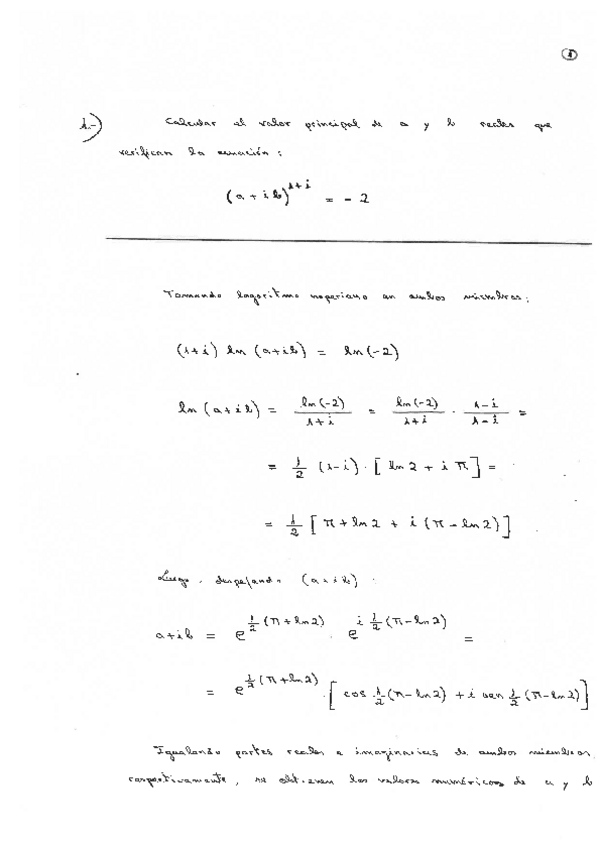 1
1.-) Calcular el valor principal de a y b reales que
verifican la ecuación:
(a + i b)^{1+i} = - 2
Tomando logaritmo neperiano en ambos miembros:
(1+i) ln (a+ib) = ln(-2)
ln (a+ib) = ln(-2) / 1+i = ln(-2) / 1+i · 1-i / 1-i =
= 1/2 (1-i) · [ ln 2 + i π ] =
= 1/2 [ π + ln 2 + i (π - ln 2) ]
Luego, despejando (a+ib):
a+ib = e^{1/2 (π + ln 2)} · e^{i 1/2 (π - ln 2)} =
= e^{1/2 (π + ln 2)} · [ cos 1/2 (π - ln 2) + i sen 1/2 (π - ln 2) ]
Igualando partes reales e imaginarias de ambos miembros,
respectivamente, se obtienen los valores numéricos de a y b